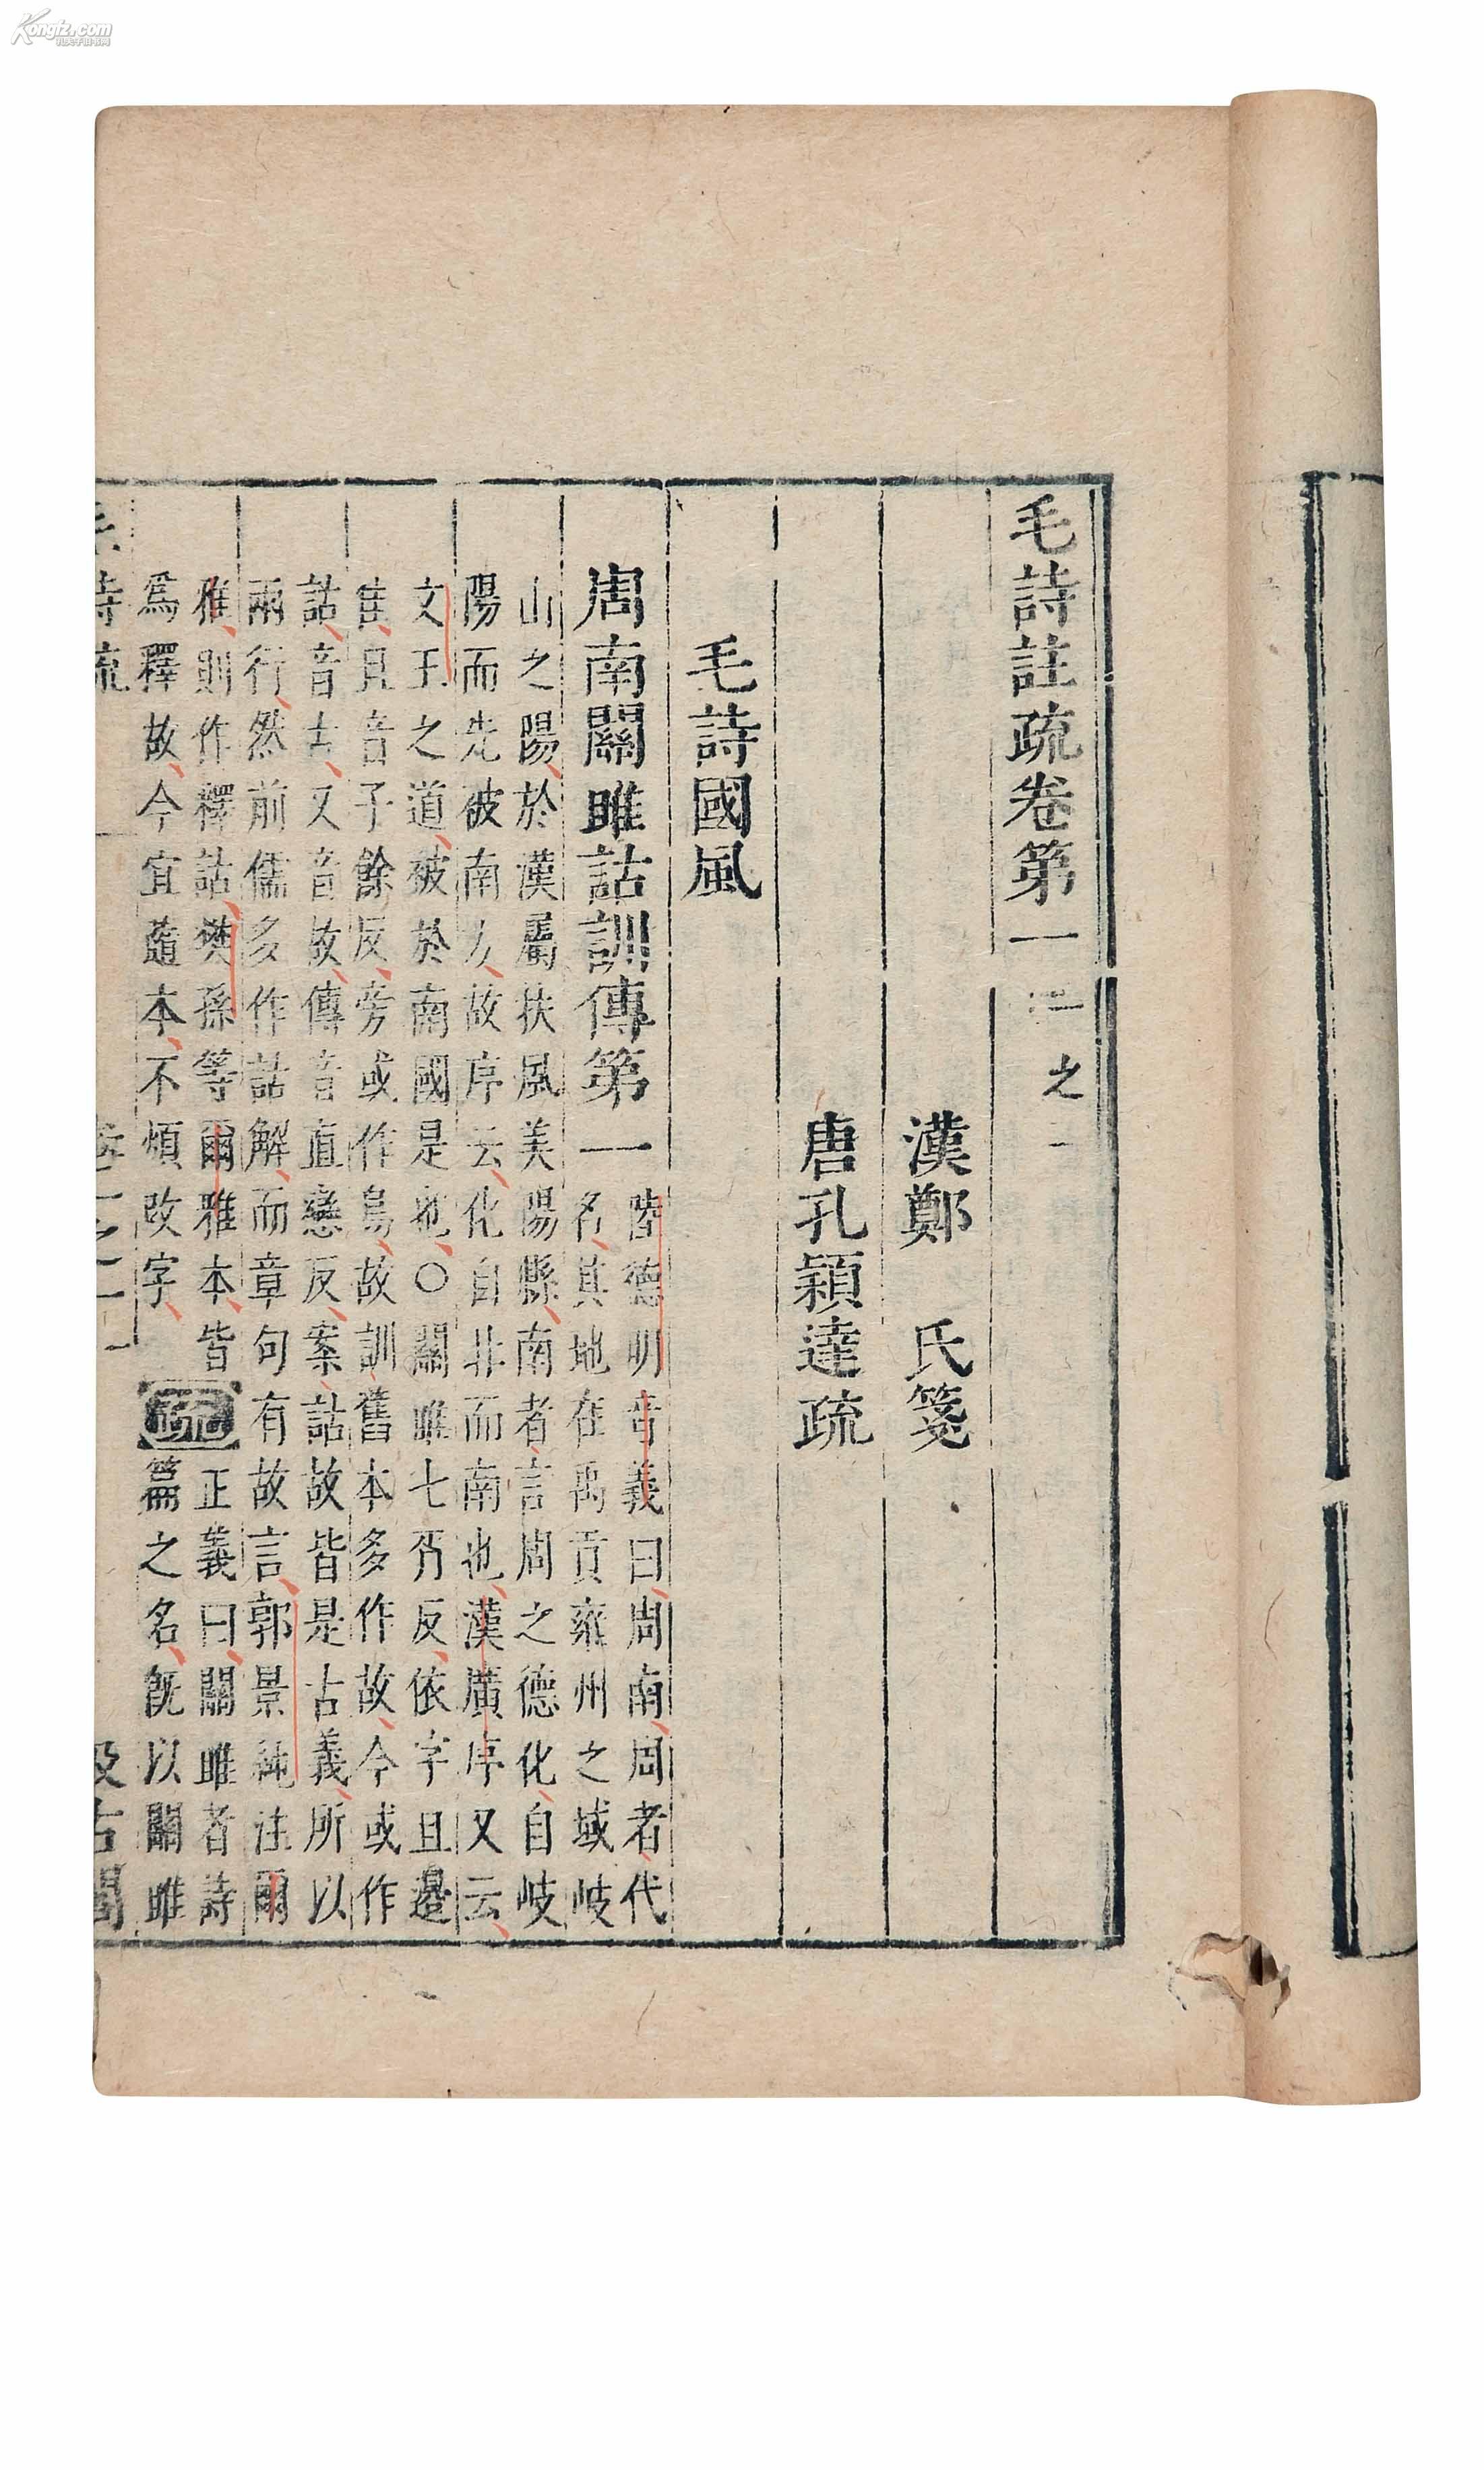 毛詩註疏卷第一 一之一
漢鄭 氏箋
唐孔穎達疏
毛詩國風
周南關雎詁訓傳第一
陸德明音義曰周南周者代
名其地在禹貢雍州之域岐
山之陽於漢屬扶風美陽縣南者言周之德化自岐
陽而先被南方故序云化自北而南也漢廣序又云
文王之道被於南國是也○關雎七胥反依字且邊
隹且音子餘反旁或作鳥故訓舊本多作故今或作
詁音古又音故傳音直戀反案詁故皆是古義所以
兩行然前儒多作詁解而章句有故言郭景純注爾
雅則作釋詁樊孫等爾雅本皆
爲釋故今宜隨本不煩改字
疏
正義曰關雎者詩
篇之名旣以關雎
毛詩疏 卷一之一 一 汲古閣
Kongfz.com
孔夫子旧书网